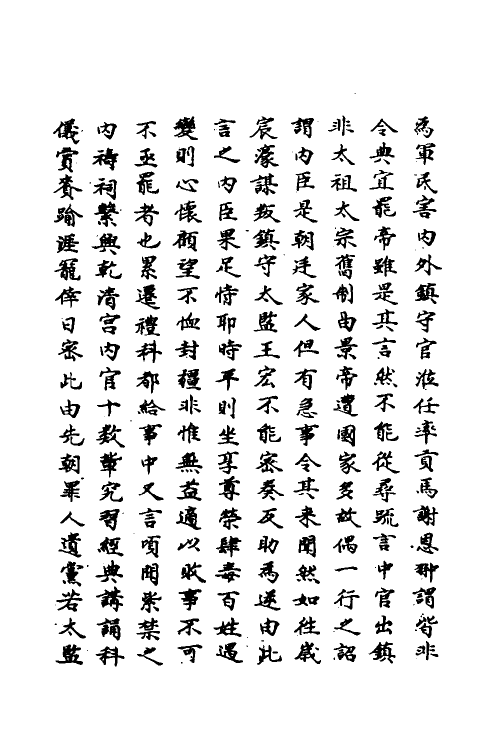 為軍民害內外鎮守官涖任率貢馬謝恩鄭謂皆非
令典宜罷帝雖是其言然不能從尋疏言中官出鎮
非太祖太宗舊制由景帝遭國家多故偶一行之詔
謂內臣是朝廷家人但有急事令其來聞然如往歲
宸濠謀叛鎮守太監王宏不能密奏反助為逆由此
言之內臣果足恃耶時平則坐享尊榮肆毒百姓遇
變則心懷顧望不恤封疆非惟無益適以敗事不可
不亟罷者也累遷禮科都給事中又言頃聞紫禁之
內禱祠繁興乾清宮內官十數輩究習經典講誦科
儀賞賚踰涯寵倖日密此由先朝罪人遺黨若太監